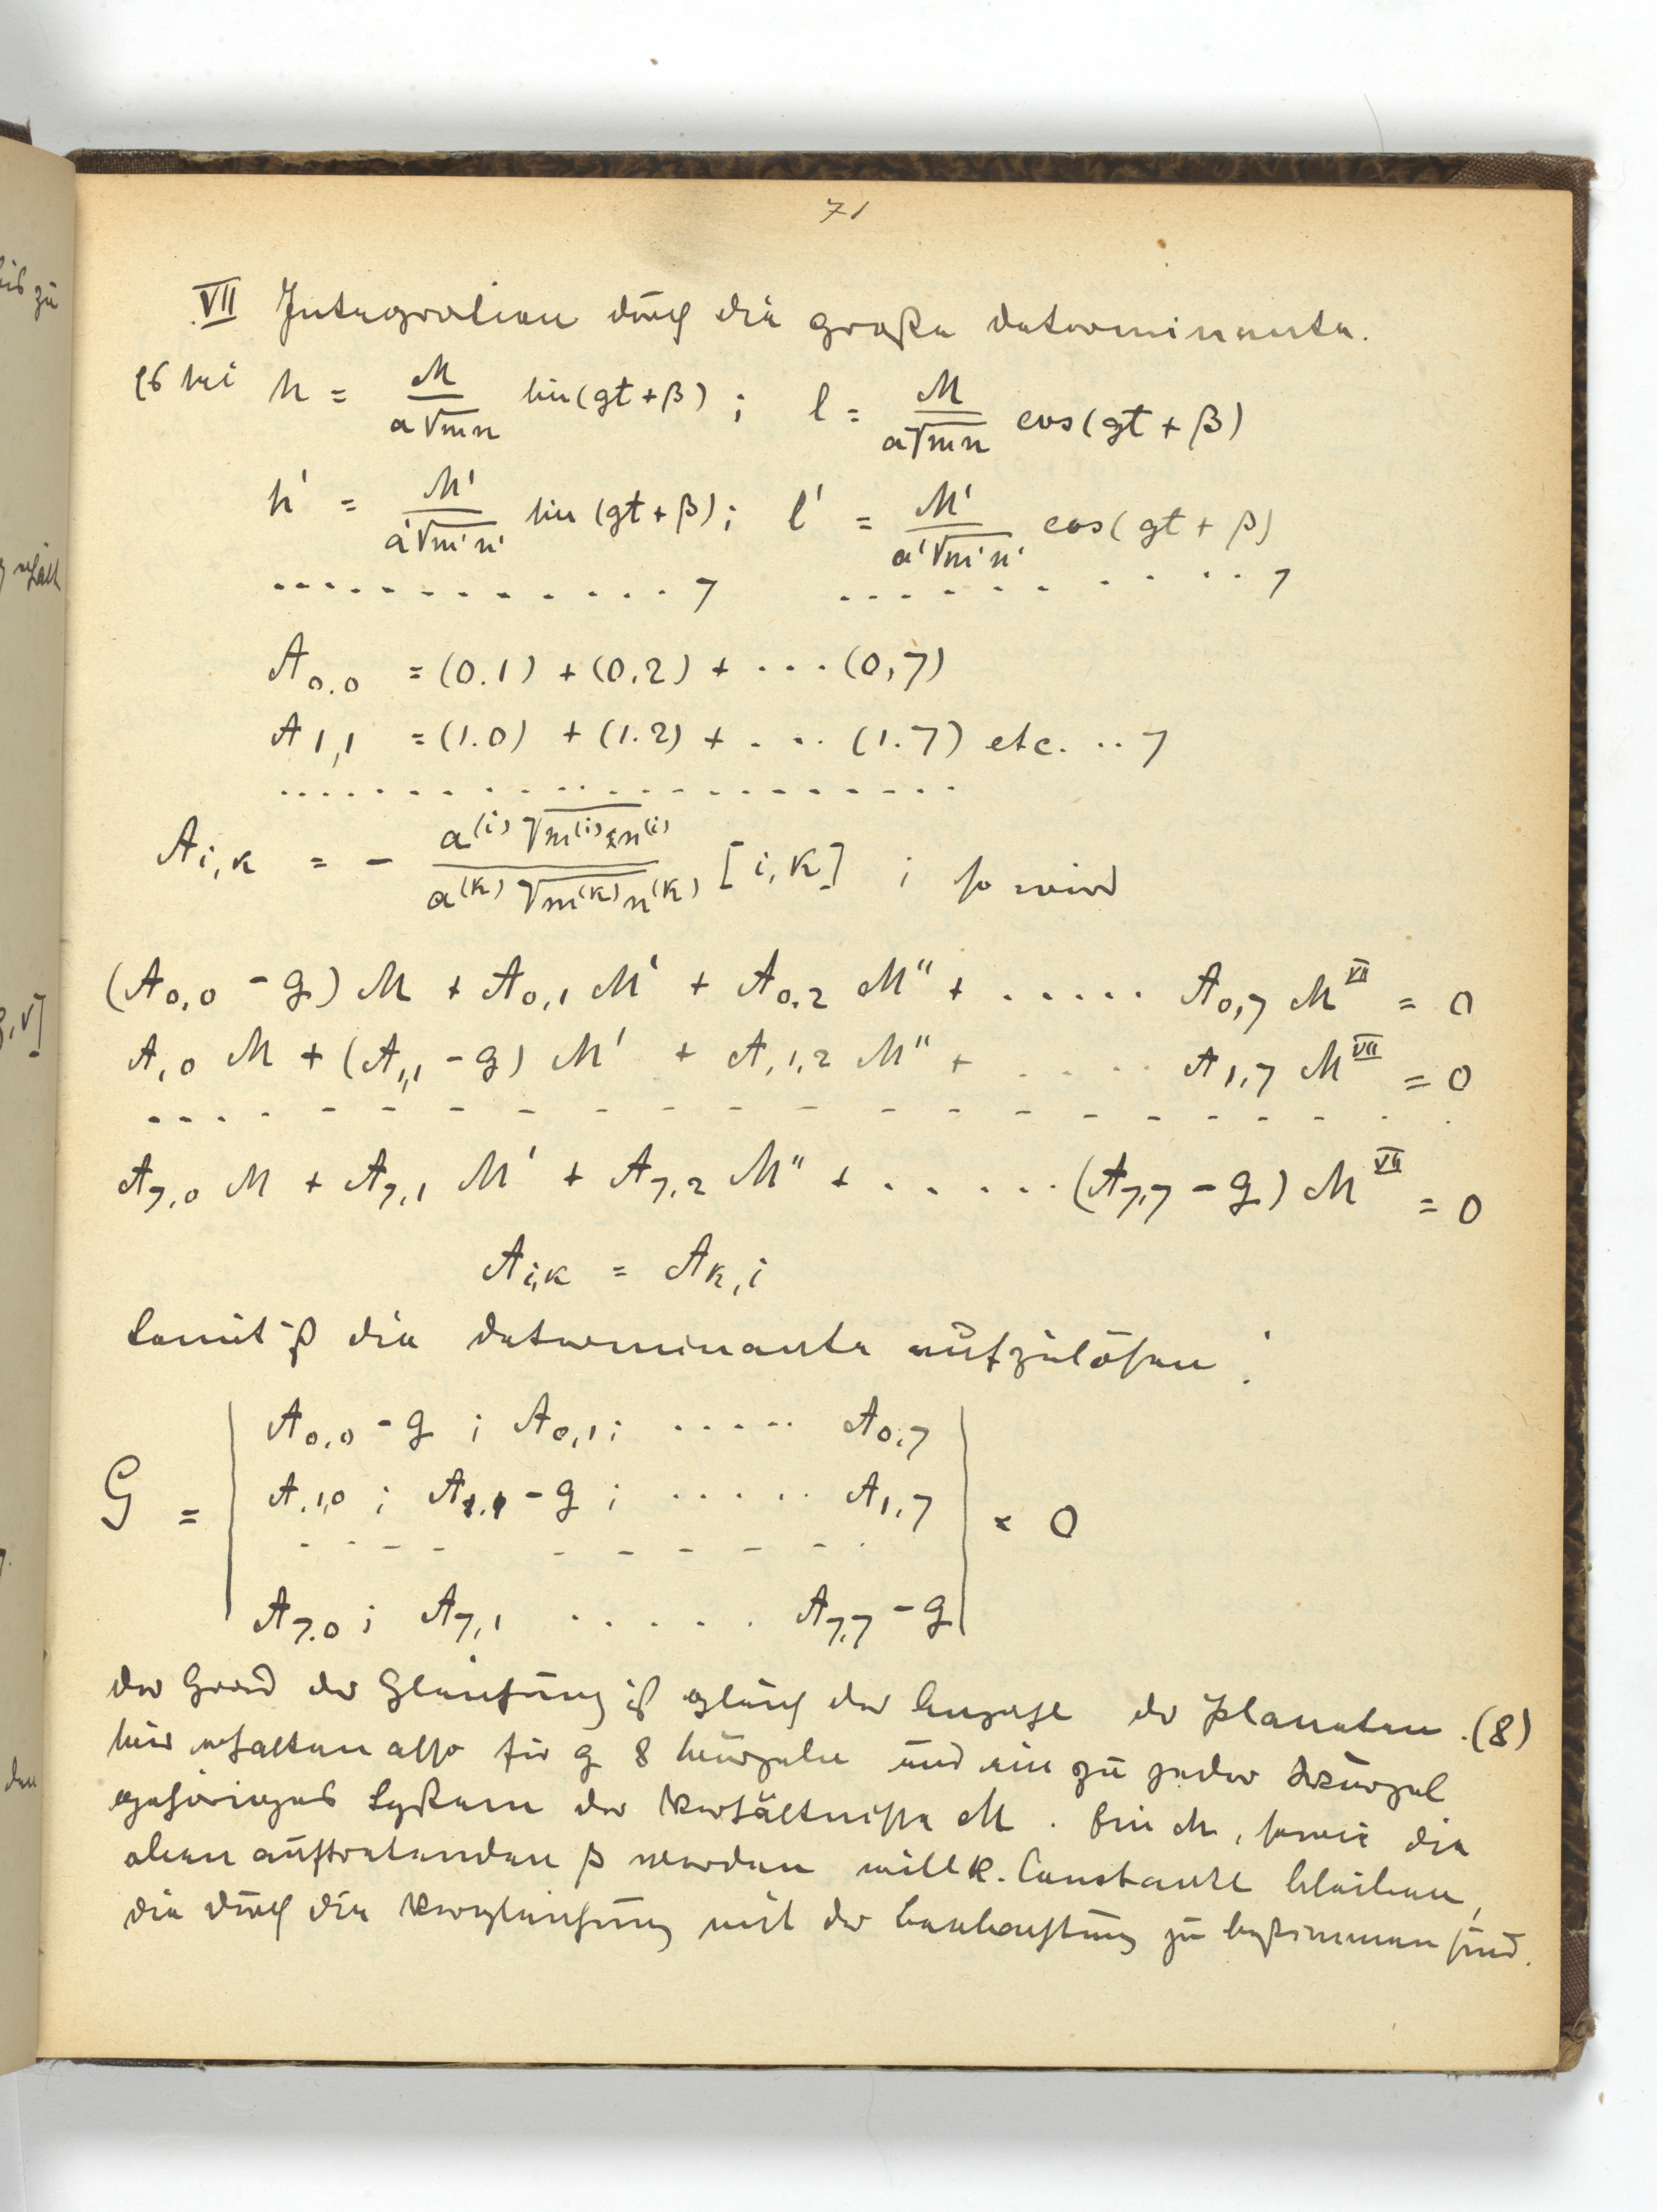 71
VII Integration durch die große Determinante.
Es sei h = M/(a√mn) sin(gt + β) ; l = M/(a√mn) cos(gt + β)
h' = M'/(a'√m'n') sin(gt + β) ; l' = M'/(a'√m'n') cos(gt + β)
. . . . . . . . . . . . 7 . . . . . . . . . . 7
A0.0 = (0.1) + (0.2) + . . . (0,7)
A1,1 = (1.0) + (1.2) + . . . (1.7) etc. . . 7
. . . . . . . . . . . . . . . . . . . .
Ai,k = - a(i) √m(i) n(i) / a(k) √m(k) n(k) [i,k] ; so wird
(A0,0 - g) M + A0,1 M' + A0.2 M'' + . . . . . A0,7 M^VII = 0
A1,0 M + (A1,1 - g) M' + A1,2 M'' + . . . . . A1,7 M^VII = 0
- - - - - - - - - - - - - - - - - - - -
A7,0 M + A7,1 M' + A7,2 M'' + . . . . . (A7,7 - g) M^VII = 0
Ai,k = Ak,i
Somit ist die Determinante aufzulösen :
A0,0 - g ; A0,1 ; . . . . . A0,7
G = A1,0 ; A1,1 - g ; . . . . . A1,7 = 0
- - - - - - - - - -
A7.0 ; A7,1 . . . . . A7,7 - g
Der Grad der Gleichung ist gleich der Anzahl der Planeten. (8)
Wir erhalten also für g 8 Wurzeln und ein zu jeder Wurzel
gehöriges System der Verhältnisse M. Ein M, sowie die
oben auftretenden β werden willk. Constante bleiben,
die durch die Vergleichung mit der Beobachtung zu bestimmen sind.
bis zu
erhält
den